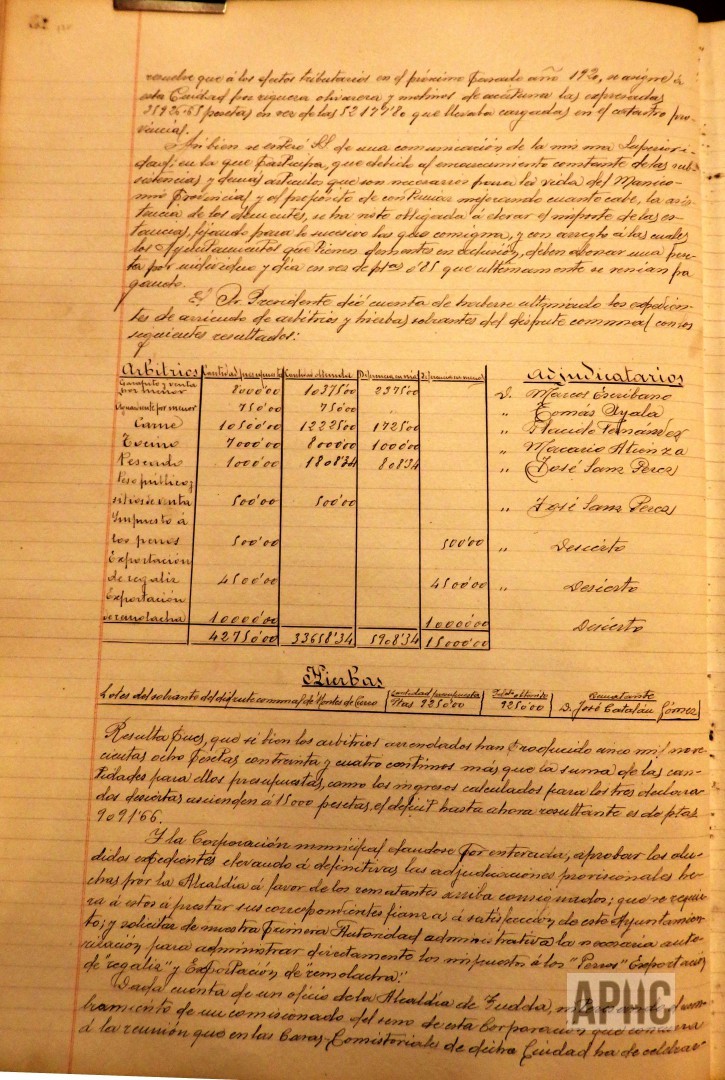 resuelve que á los efectos tributarios en el próximo pasado año 192, se asigne á
esta Ciudad por riqueza olivarera y molinos de aceituna las expresadas
pesetas en vez de las que llevaba cargadas en el catastro pro-
vincial.
También se enteró SS de una comunicación de la misma Superiori-
dad, en la que participa, que debido al encarecimiento constante de las sub-
sistencias y demás artículos que son necesarios para la vida del Manico-
mio Provincial y el propósito de continuar mejorando cuanto cabe, la asis-
tencia de los dementes, se ha visto obligada á elevar el importe de las es-
tancias, fijando para lo sucesivo las que consigna, y con arreglo á las cuales
los Ayuntamientos que tienen dementes en reclusión, deben abonar una pese-
ta por individuo y día en vez de ptas 0'85 que ultimamente se venían pa-
gando.
El Sr. Presidente dió cuenta de haberse ultimado los expedien-
tes de arriendo de arbitrios y hierbas sobrantes del disfrute comunal con los
siguientes resultados:
Arbitrios Cantidad presupuesta Cantidad obtenida Diferencia en más Diferencia en menos Adjudicatarios
y venta
por menor 8000'00 10375'00 2375'00 D. Marcos Escribano
Aguardiente por menor 750'00 750'00 " Tomás Ayala
Carne 10500'00 12225'00 1725'00 " Plácido Fernández
Tocino 7000'00 8000'00 1000'00 " Macario Atienza
Pescado 1000'00 1808'34 808'34 " José Sanz Perez
Peso público y
sitios de venta 500'00 500'00 " José Sanz Perez
Impuesto á
los perros 500'00 500'00 " Desierto
Exportación
de regaliz 4500'00 4500'00 " Desierto
Exportación
remolacha 10000'00 10000'00 Desierto
42750'00 33658'34 5908'34 15000'00
Hierbas
Lotes del sobrante del disfrute comunal de Montes de Cierzo Cantidad presupuesta Ptas 9250'00 Id. obtenida 9250'00 Rematante D. José Catalán Gómez
Resulta pues, que si bien los arbitrios arrendados han producido cinco mil nove-
cientas ocho pesetas con treinta y cuatro céntimos más que la suma de las can-
tidades para ellos presupuestas, como los ingresos calculados para los tres declara-
dos desiertos ascienden á 15000 pesetas, el déficit hasta ahora resultante es de ptas
9091'66.
Y la Corporación municipal dándose por enterada, aprobar los alu-
didos expedientes elevando á definitivas las adjudicaciones provisionales he-
chas por la Alcaldía á favor de los rematantes arriba consignados; que se requie-
ra á estos á prestar sus correspondientes fianzas á satisfacción de este Ayuntamien-
to; y solicitar de nuestra primera Autoridad administrativa la necesaria auto-
rización para administrar directamente los impuestos á los "Perros" Exportación
de "regaliz" y Exportación de "remolacha".
Dada cuenta de un oficio de la Alcaldía de Tudela,
bramiento de un comisionado del seno de esta Corporación que concurra
á la reunión que en las Casas Consistoriales de dicha Ciudad ha de celebrar
APHC